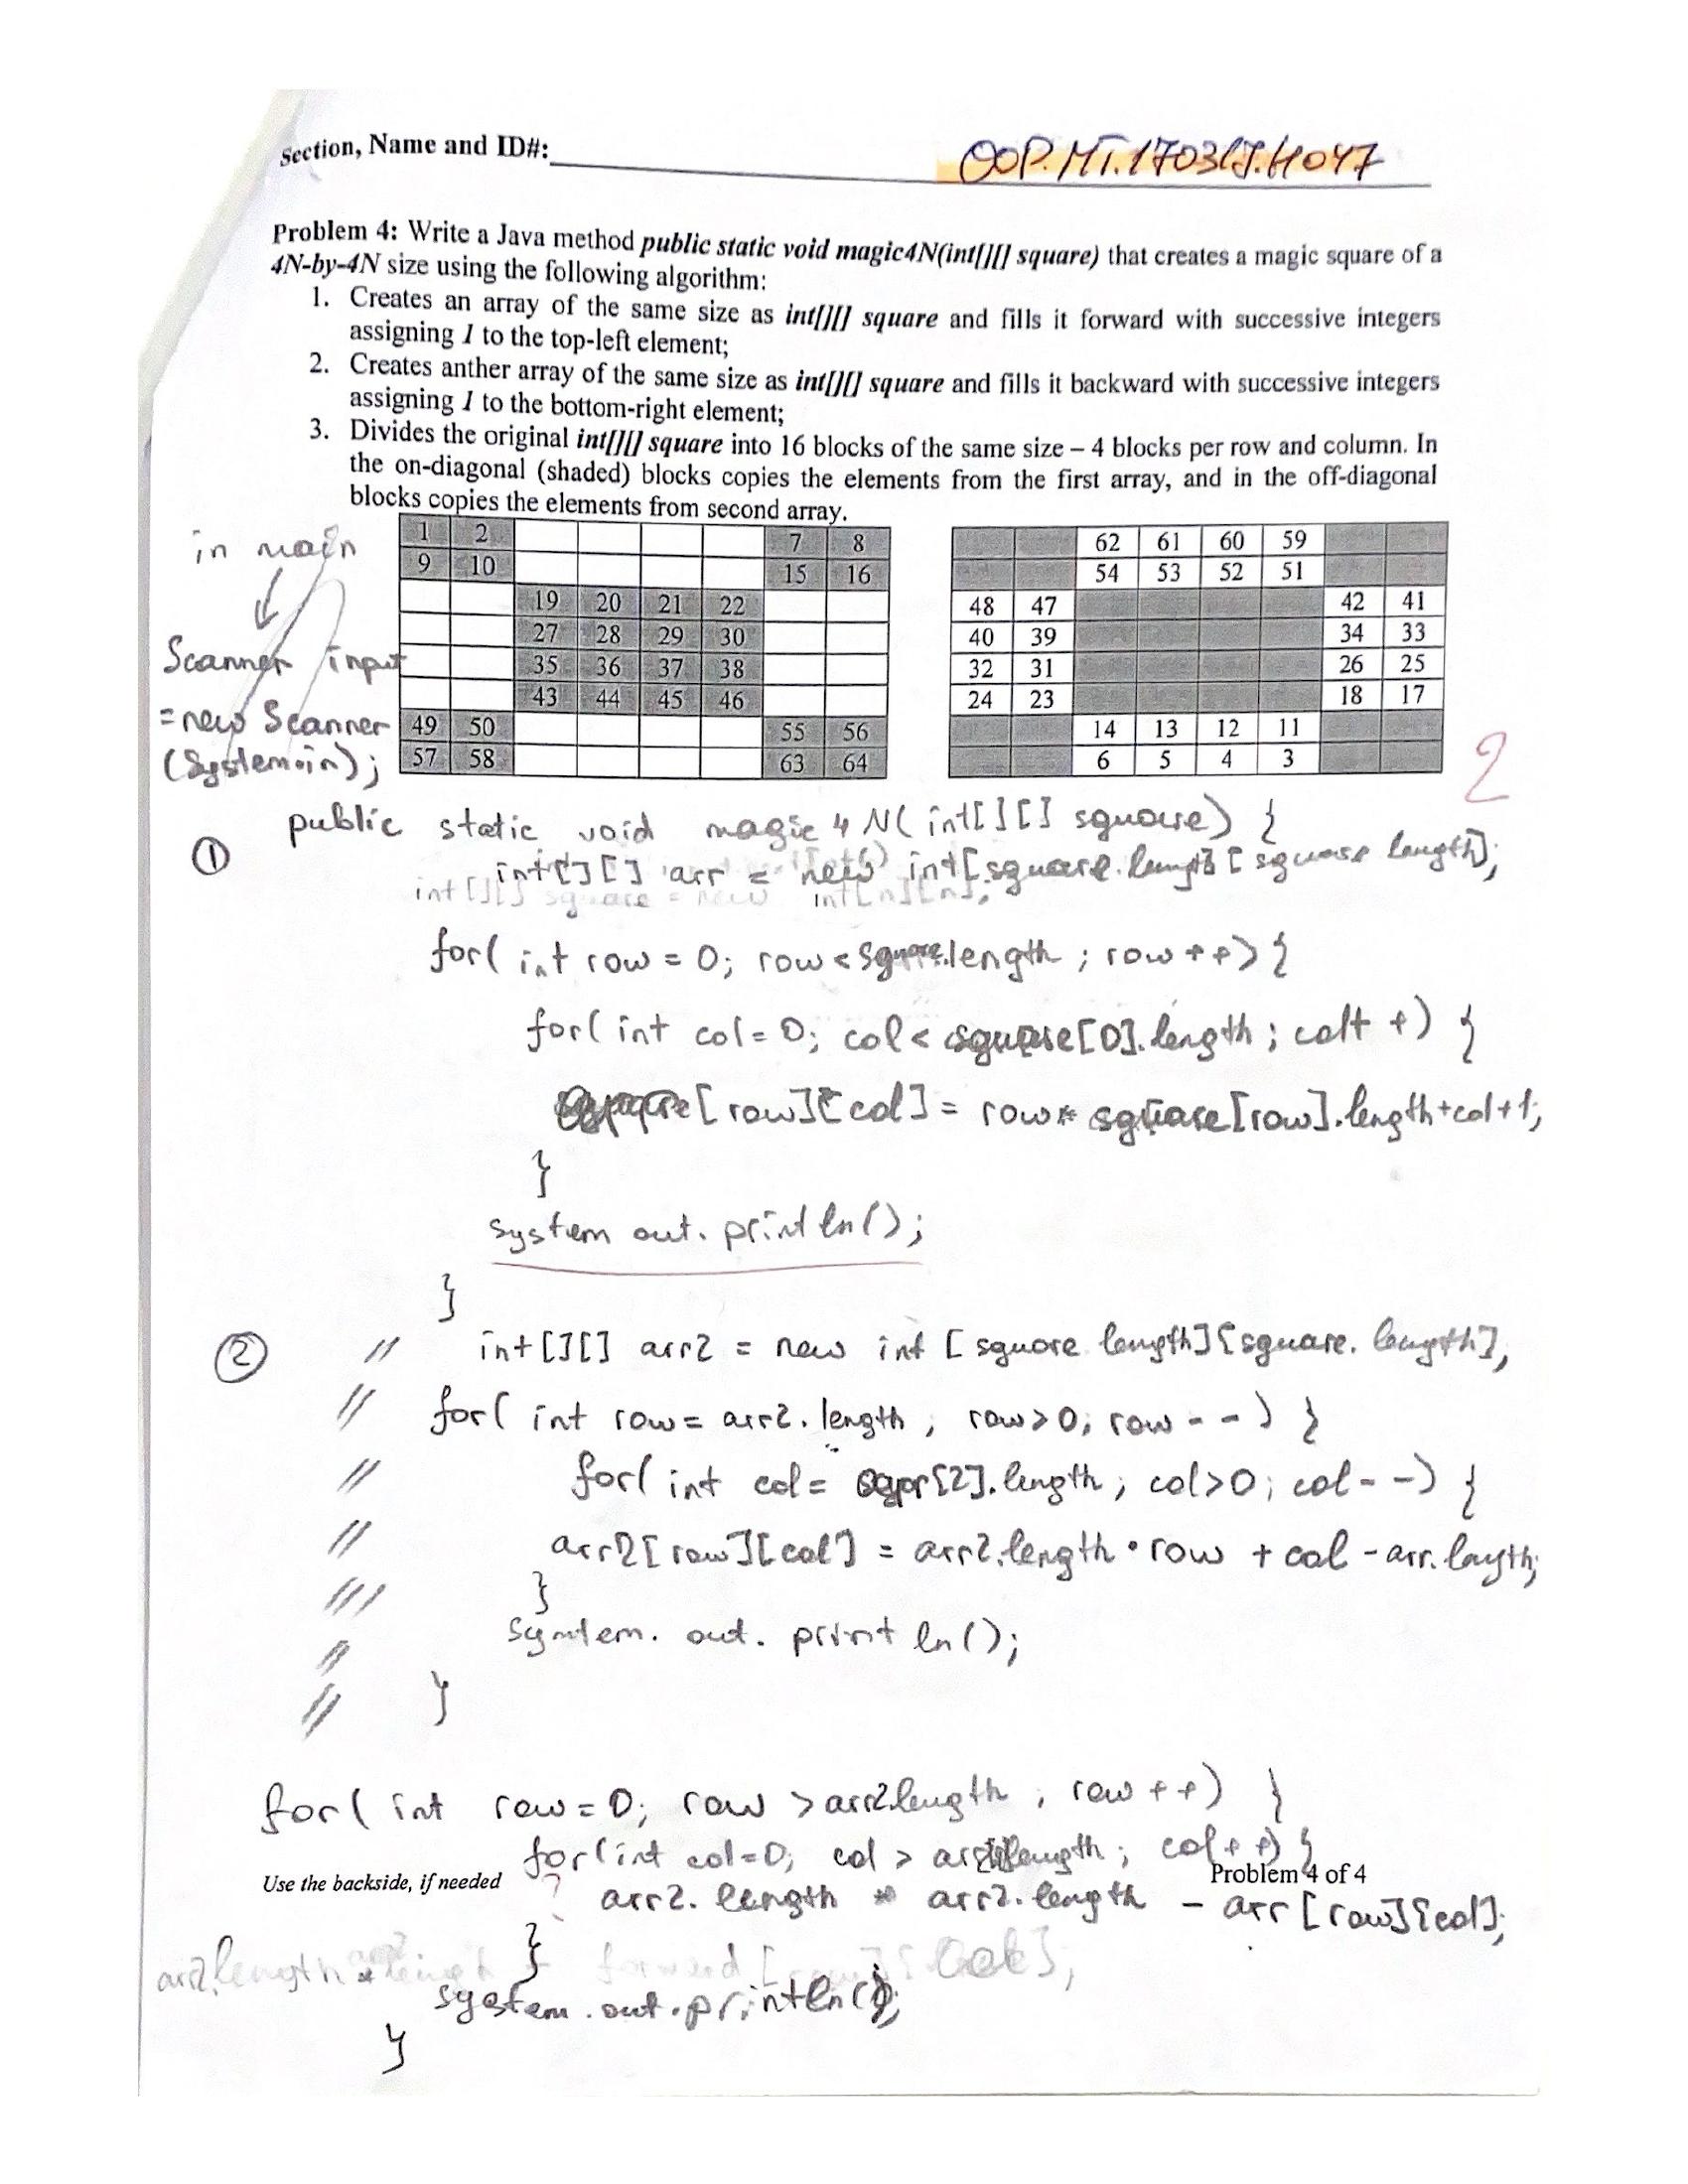 Section, Name and ID#:
OOP.MT.170319.H047
Problem 4: Write a Java method public static void magic4N(int[][] square) that creates a magic square of a
4N-by-4N size using the following algorithm:
1. Creates an array of the same size as int[][] square and fills it forward with successive integers
assigning 1 to the top-left element;
2. Creates anther array of the same size as int[][] square and fills it backward with successive integers
assigning 1 to the bottom-right element;
3. Divides the original int[][] square into 16 blocks of the same size – 4 blocks per row and column. In
the on-diagonal (shaded) blocks copies the elements from the first array, and in the off-diagonal
blocks copies the elements from second array.
1 2 7 8
9 10 15 16
19 20 21 22
27 28 29 30
35 36 37 38
43 44 45 46
49 50 55 56
57 58 63 64
62 61 60 59
54 53 52 51
48 47 42 41
40 39 34 33
32 31 26 25
24 23 18 17
14 13 12 11
6 5 4 3
in main
Scanner input
= new Scanner
(System.in);
2
① public static void magic 4 N( int[][] square) {
int[][] arr = new int[square.length][square length];
int[][] square = new int[n][n];
for( int row = 0; row < square.length ; row ++) {
for( int col = 0; col < square[0].length ; col++) {
square[row][col] = row * square[row].length+col+1;
}
system out. println();
}
② // int[][] arr2 = new int [square length][square. length],
// for( int row = arr2. length , row>0; row - -) }
// for( int col = [2].length ; col>0; col- -) {
// arr2[row][col] = arr2.length • row + col - arr. length;
/// }
// System. out. print ln();
// }
for( int row = 0; row > arr2length , row ++) }
for(int col=0; col > length ; col++) {
Use the backside, if needed
Problem 4 of 4
? arr2. length * arr2. length - arr [row][col];
}
arr2.length * - forward [row][col];
system.out.println();
}